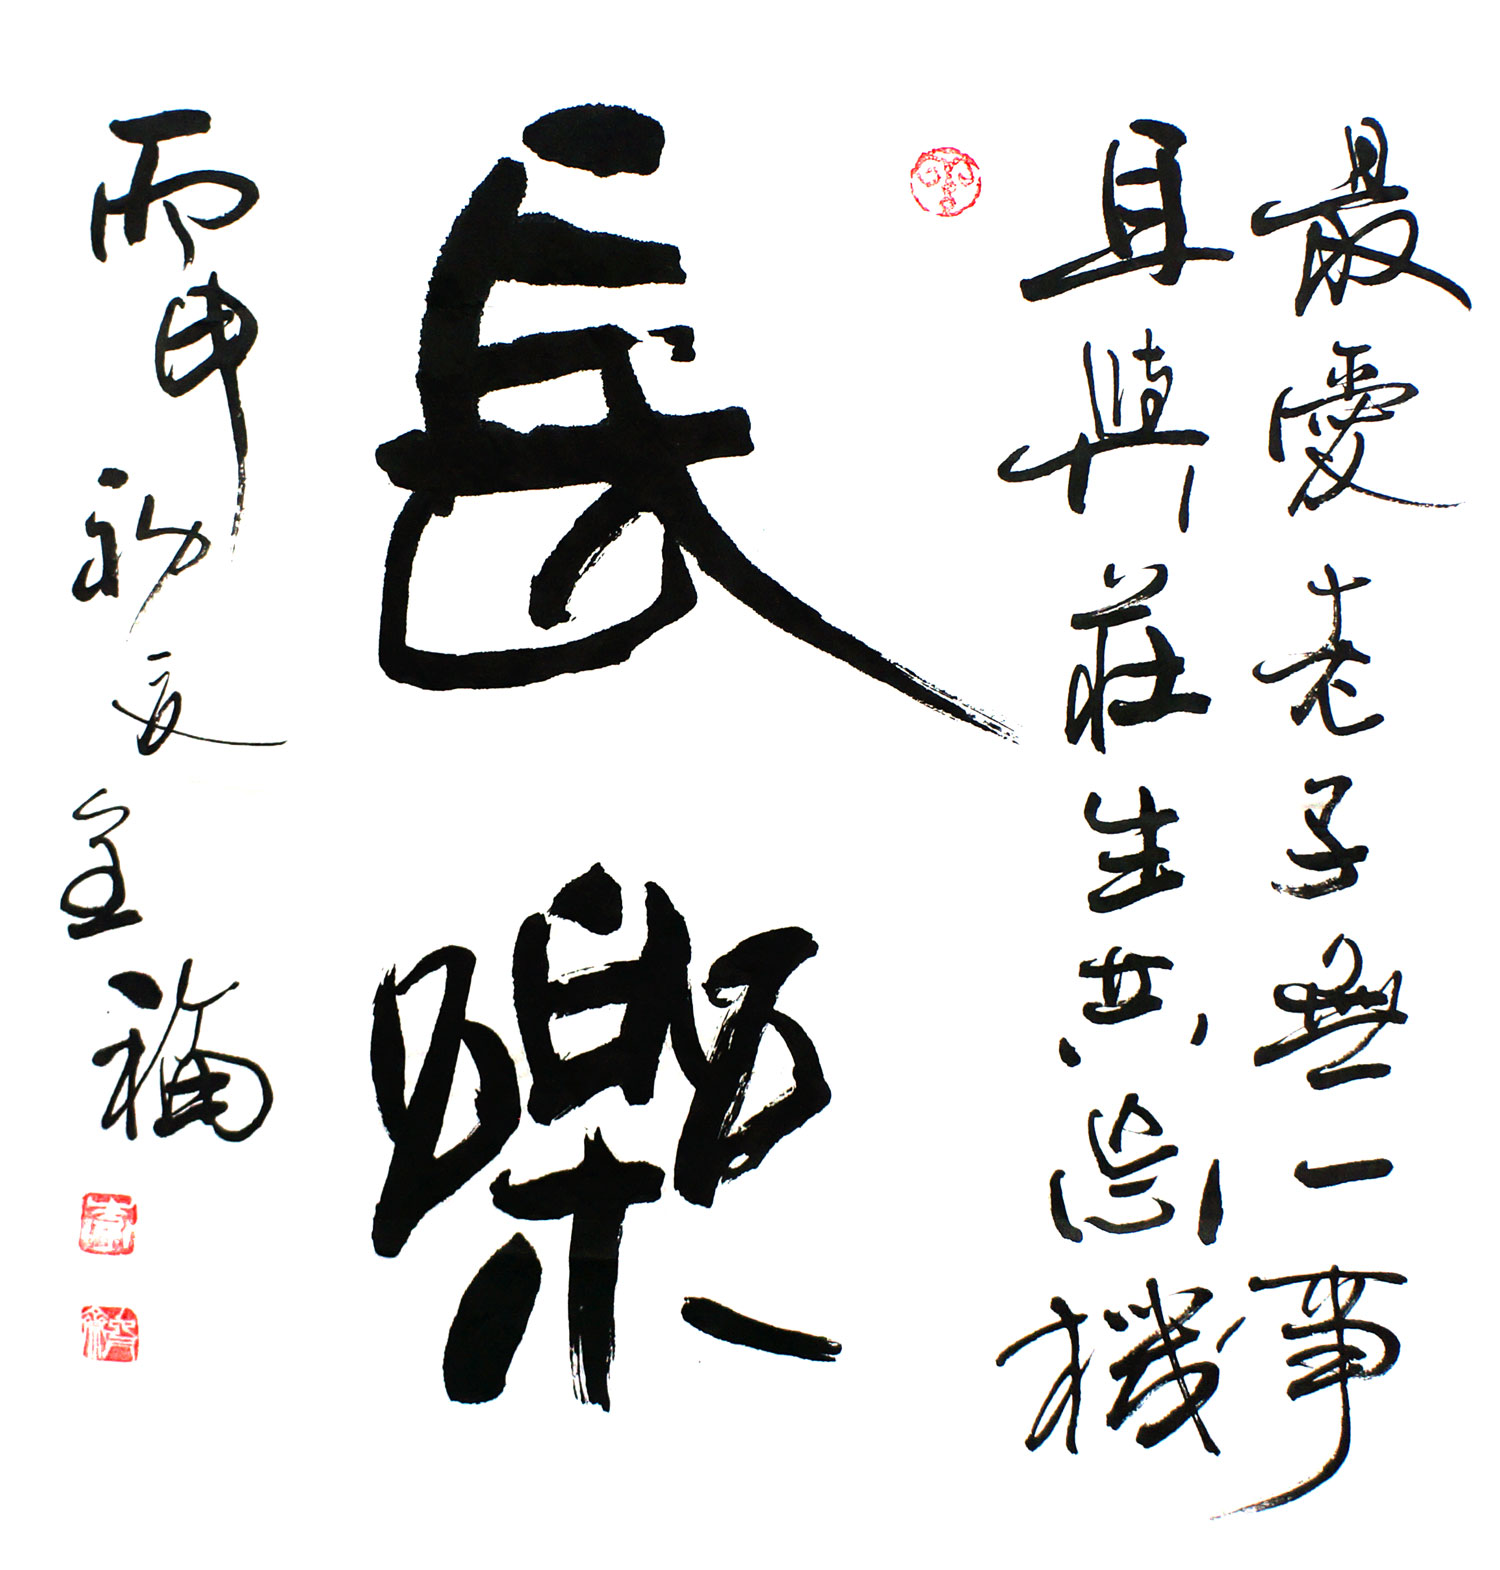 最愛老子無一事
且與莊生共忘機
長樂
丙申初夏全福